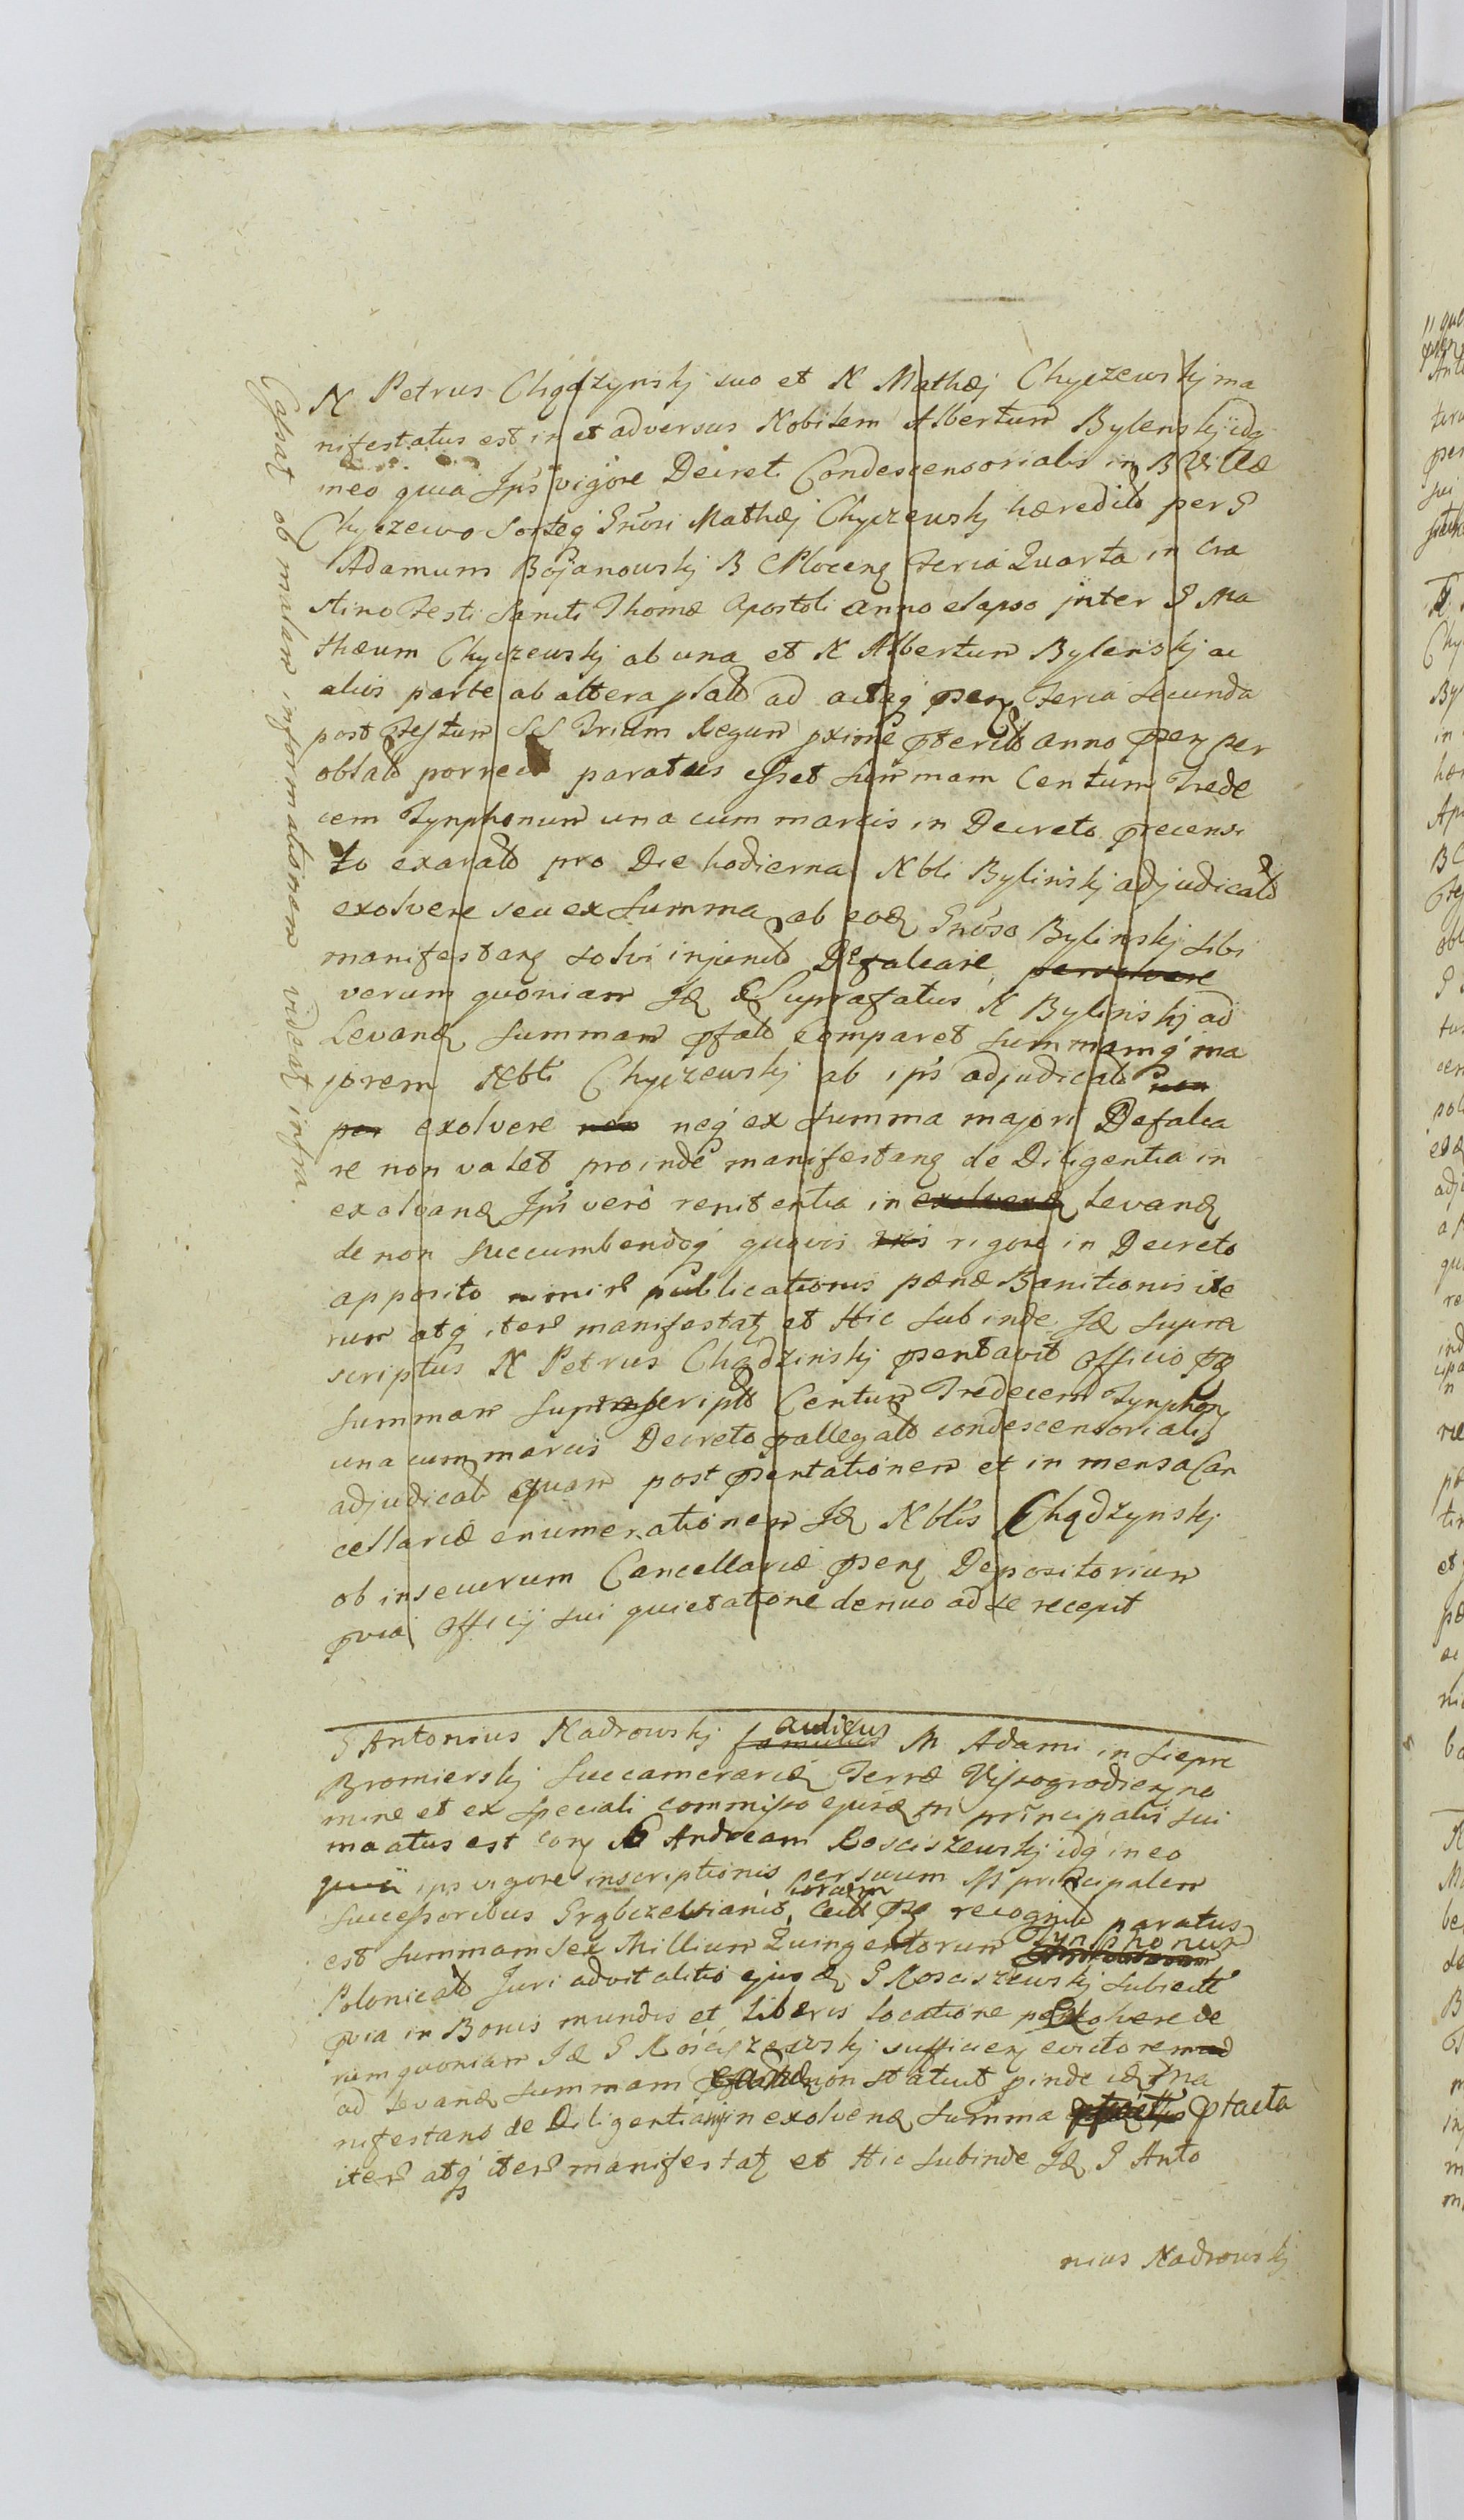 N Petrus Chądzynskj suo et N Mathæj Chyczewskj ma
nifestatus est in et adversus Nobilem Albertum Bylenskj idq
ineo quia Ips vigore Decret Condescensorialis in B Villæ
Chyczewo Sorteq Gnosi Mathæj Chyczewskj hæredit per G
Adamum Bojanowskj B C Plocenz Feria Quarta in Cra
stino Festi Sancti Thomæ Apostoli anno elapso inter G Ma
thæum Chyczewskj ab una et N Albertum Bylenskj ac
alius parte ab altera plat ad actaq psenz Feria Secunda
post Festum SS Trium Regum pxime pterit anno psenz per
oblat porrect paratus esset Summam Centum Trede
cem Tynphonum una cum marcis in Decreto precensi
to exarato pro Die hodierna Nbli Bylinskj adjudicat
exolvere seu ex Summa ab eod Gnoso Bylinskj sibi
manifestanz solvi injunct Defalcare persolvere
verum quoniam Id Suprafatus N Bylinskj ad
Levand Summam pfat comparet Summamq ma
jorem Nbli Chyczewskj ab ips adjudicat non
per exolvere non neq ex Summa majori Defalca
re non valet proinde manifestanz de Diligentia in
exolvand Ips vero renitentia in exolvend Levand
de non succumbendoq quavis rigore in Decreto
apposito nimir publicationis pænæ Banitionis ite
rum atq iter manifestatz et Hic Subinde Id Supra
scriptus N Petrus Chądzinskj psentavit Officio pz
Summam Suprascript Centum Tredecem Tynphonz
una cum marcis Decreto pallegat condescensorialz
adjudicat quam post psentationem et in mensa Can
cellariæ enumerationem Id Nblis Chądzynskj
ob insecurum Cancellariæ psenz Depositorium
pvia Officij sui quietatione denuo ad se recepit
Cassat ob malam informationem videat infra.
G Antonius Nadrowskj famulus aulicus M Adami in Siepre
Bromierskj Succamerarid Terræ Vyssogrodienz no
mine et ex speciali commisso ejusd M principalis sui
maatus est con G Andream Rosciszewskj idq in eo
quia ips vigore inscriptionis per suum M principalem
Successoribus Grąbczewianis, coram recognit paratus
est Summam Sex Millium Quingentorum Tynphonum
Polonical Juri advitalitio ejusd G Rosciszewskj Subiect
pvia in Bonis mundis et Liberis locatione persolvere ve
rum quoniam Id G Rosciszewskj sufficienz evictorem
ad Levand Summam non statuit pinde id ma
nifestans de Diligentia in exolvend Summa ptacta
iter atq iter manifestatz et Hic Subinde Id G Anto
nius Nadrowskj